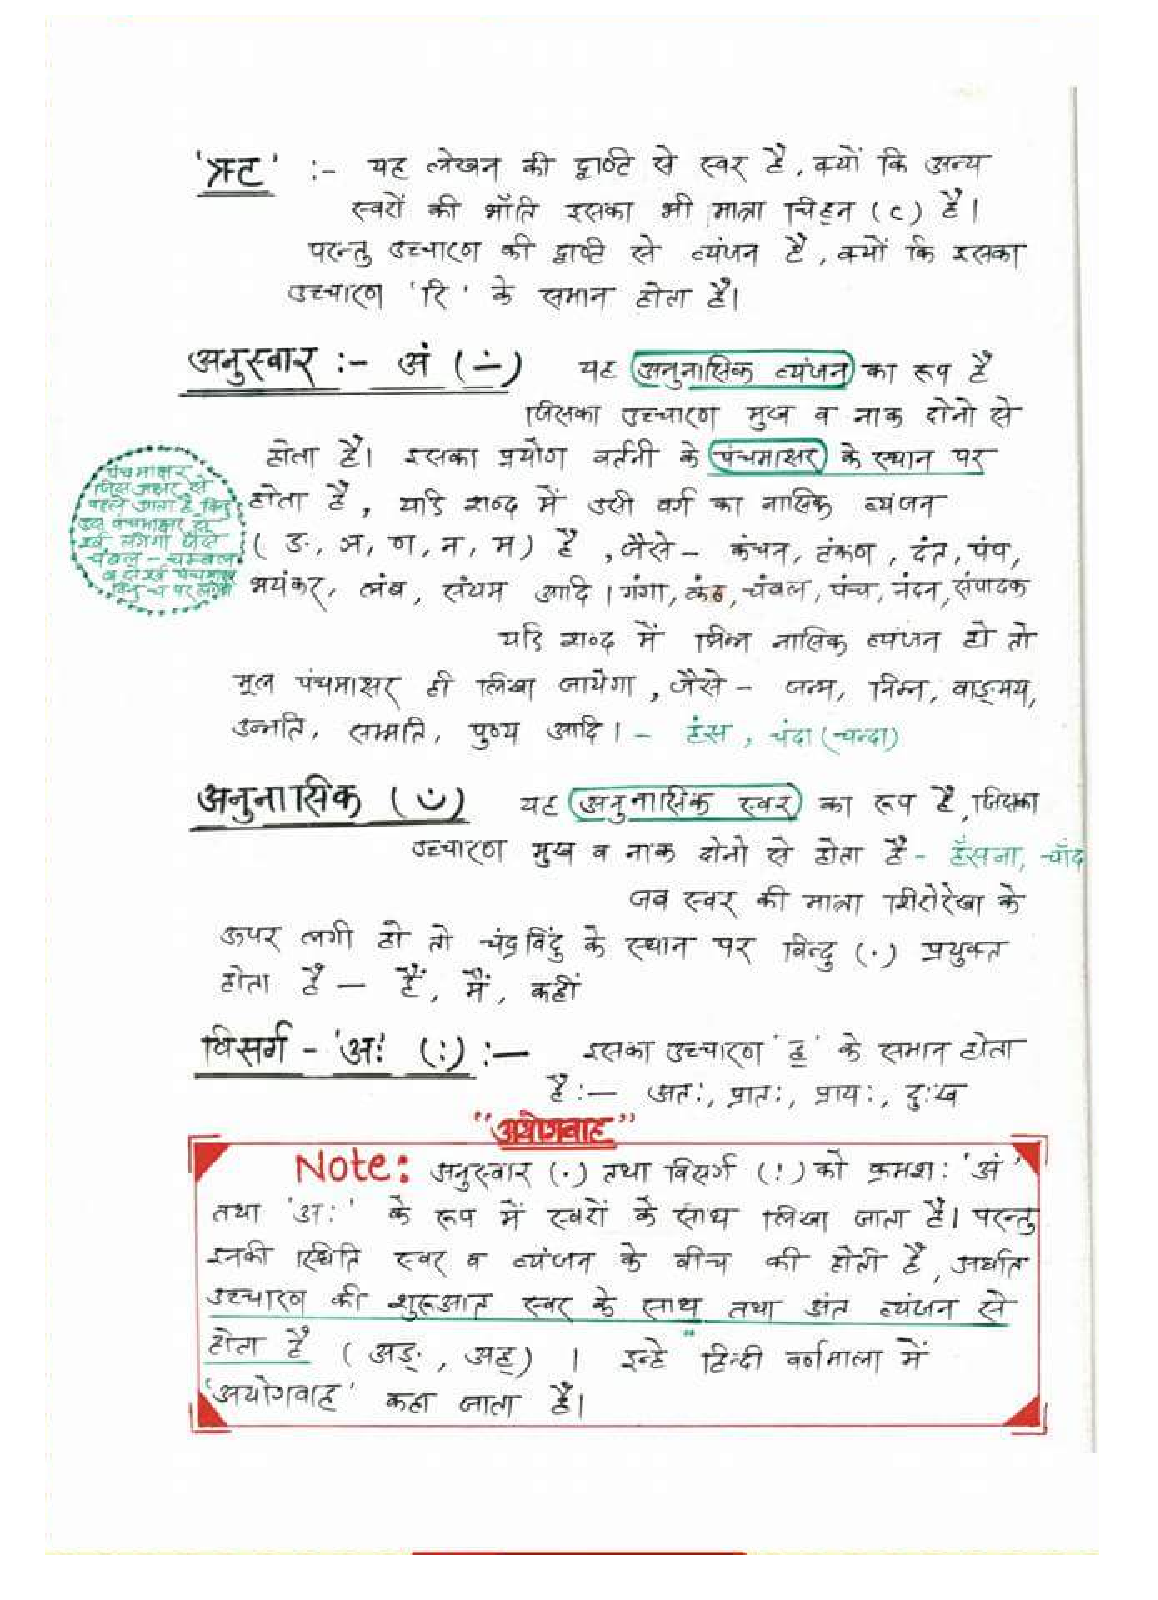 'ऋ' :- यह लेखन की दृष्टि से स्वर है, क्यों कि अन्य
स्वरों की भाँति इसका भी मात्रा चिह्न (c) है।
परन्तु उच्चारण की दृष्टि से व्यंजन है, क्यों कि इसका
उच्चारण 'रि' के समान होता है।
अनुस्वार :- अं (∸) यह अनुनासिक व्यंजन का रूप है
जिसका उच्चारण मुख व नाक दोनो से
होता है। इसका प्रयोग वर्तनी के पंचमाक्षर के स्थान पर
होता है, यदि शब्द में उसी वर्ग का नासिक व्यंजन
(ङ, ञ, ण, न, म) है, जैसे - कंचन, टंकण, दंत, पंप,
भयंकर, लंब, संयम आदि। गंगा, कंठ, चंबल, पंच, नंदन, संपादक
पंचमाक्षर
जिस अक्षर से
पहले आता है बिन्दु
उस पंचमाक्षर से
पूर्व लगेगा जैसे
चंबल - चम्बल
बिन्दु च पर लगेगा
यदि शब्द में भिन्न नासिक व्यंजन हो तो
मूल पंचमाक्षर ही लिखा जायेगा, जैसे - जन्म, निम्न, वाङ्मय,
उन्नति, सम्मति, पुण्य आदि। - हंस, चंदा (चन्दा)
अनुनासिक (ँ) यह अनुनासिक स्वर का रूप है, जिसका
उच्चारण मुख व नाक दोनो से होता है - हँसना, चाँद
जब स्वर की मात्रा शिरोरेखा के
ऊपर लगी हो तो चंद्रबिंदु के स्थान पर बिन्दु (.) प्रयुक्त
होता है — हैं, मैं, कहीं
विसर्ग - 'अः' (:) :— इसका उच्चारण 'ह्' के समान होता
है :— अतः, प्रातः, प्रायः, दुःख
"अयोगवाह"
Note: अनुस्वार (.) तथा विसर्ग (:) को क्रमशः 'अं'
तथा 'अः' के रूप में स्वरों के साथ लिखा जाता है। परन्तु
इनकी स्थिति स्वर व व्यंजन के बीच की होती है, अर्थात
उच्चारण की शुरूआत स्वर के साथ तथा अंत व्यंजन से
होता है (अङ्, अह्)। इन्हे हिन्दी वर्णमाला में
'अयोगवाह' कहा जाता है।